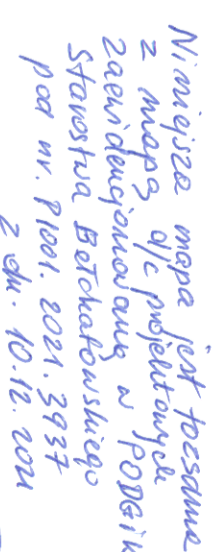 Niniejsza mapa jest tożsama
z mapą d/c projektowych
zaewidencjonowaną w PODGiK
Starostwa Bełchatowskiego
pod nr. P1001.2021.3937
z dn. 10.12.2021